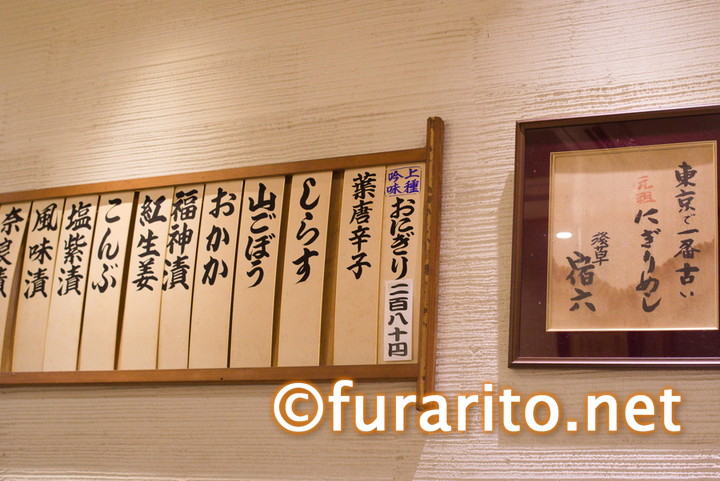 上種
吟味
おにぎり
二百八十円
葉唐辛子
しらす
山ごぼう
おかか
福神漬
紅生姜
こんぶ
塩紫漬
風味漬
奈良漬
東京で一番古い
元祖
にぎりめし
浅草
宿六
©furarito.net